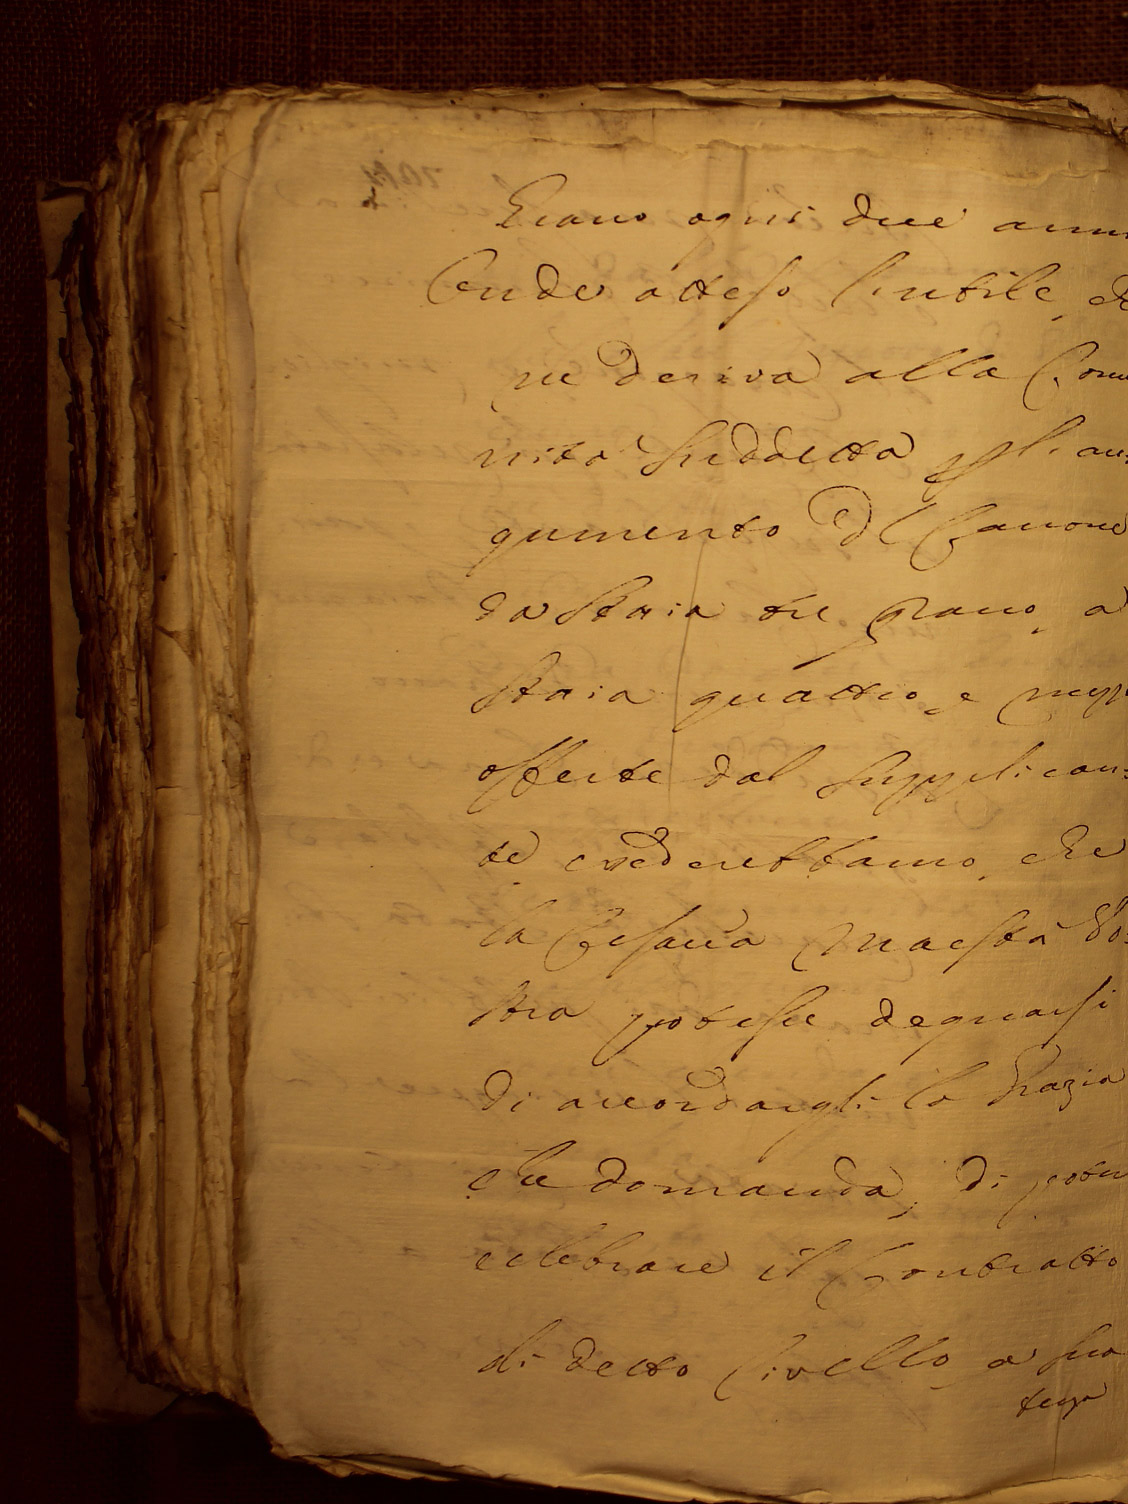 Grano ogni due anni
Onde atteso l'utile, che
ne deriva alla Comu
nità Suddetta p l'au:
gumento del Canone
da Staia tre grano, a
Staia quattro, e mezz
offerte dal Supplican:
te crederebbamo, che
la Cesarea Maestà Vo:
stra potesse degnarsi
di accordargli la Grazia
che domanda, di poter
celebrare il Contratto
di detto Livello a sua
terza